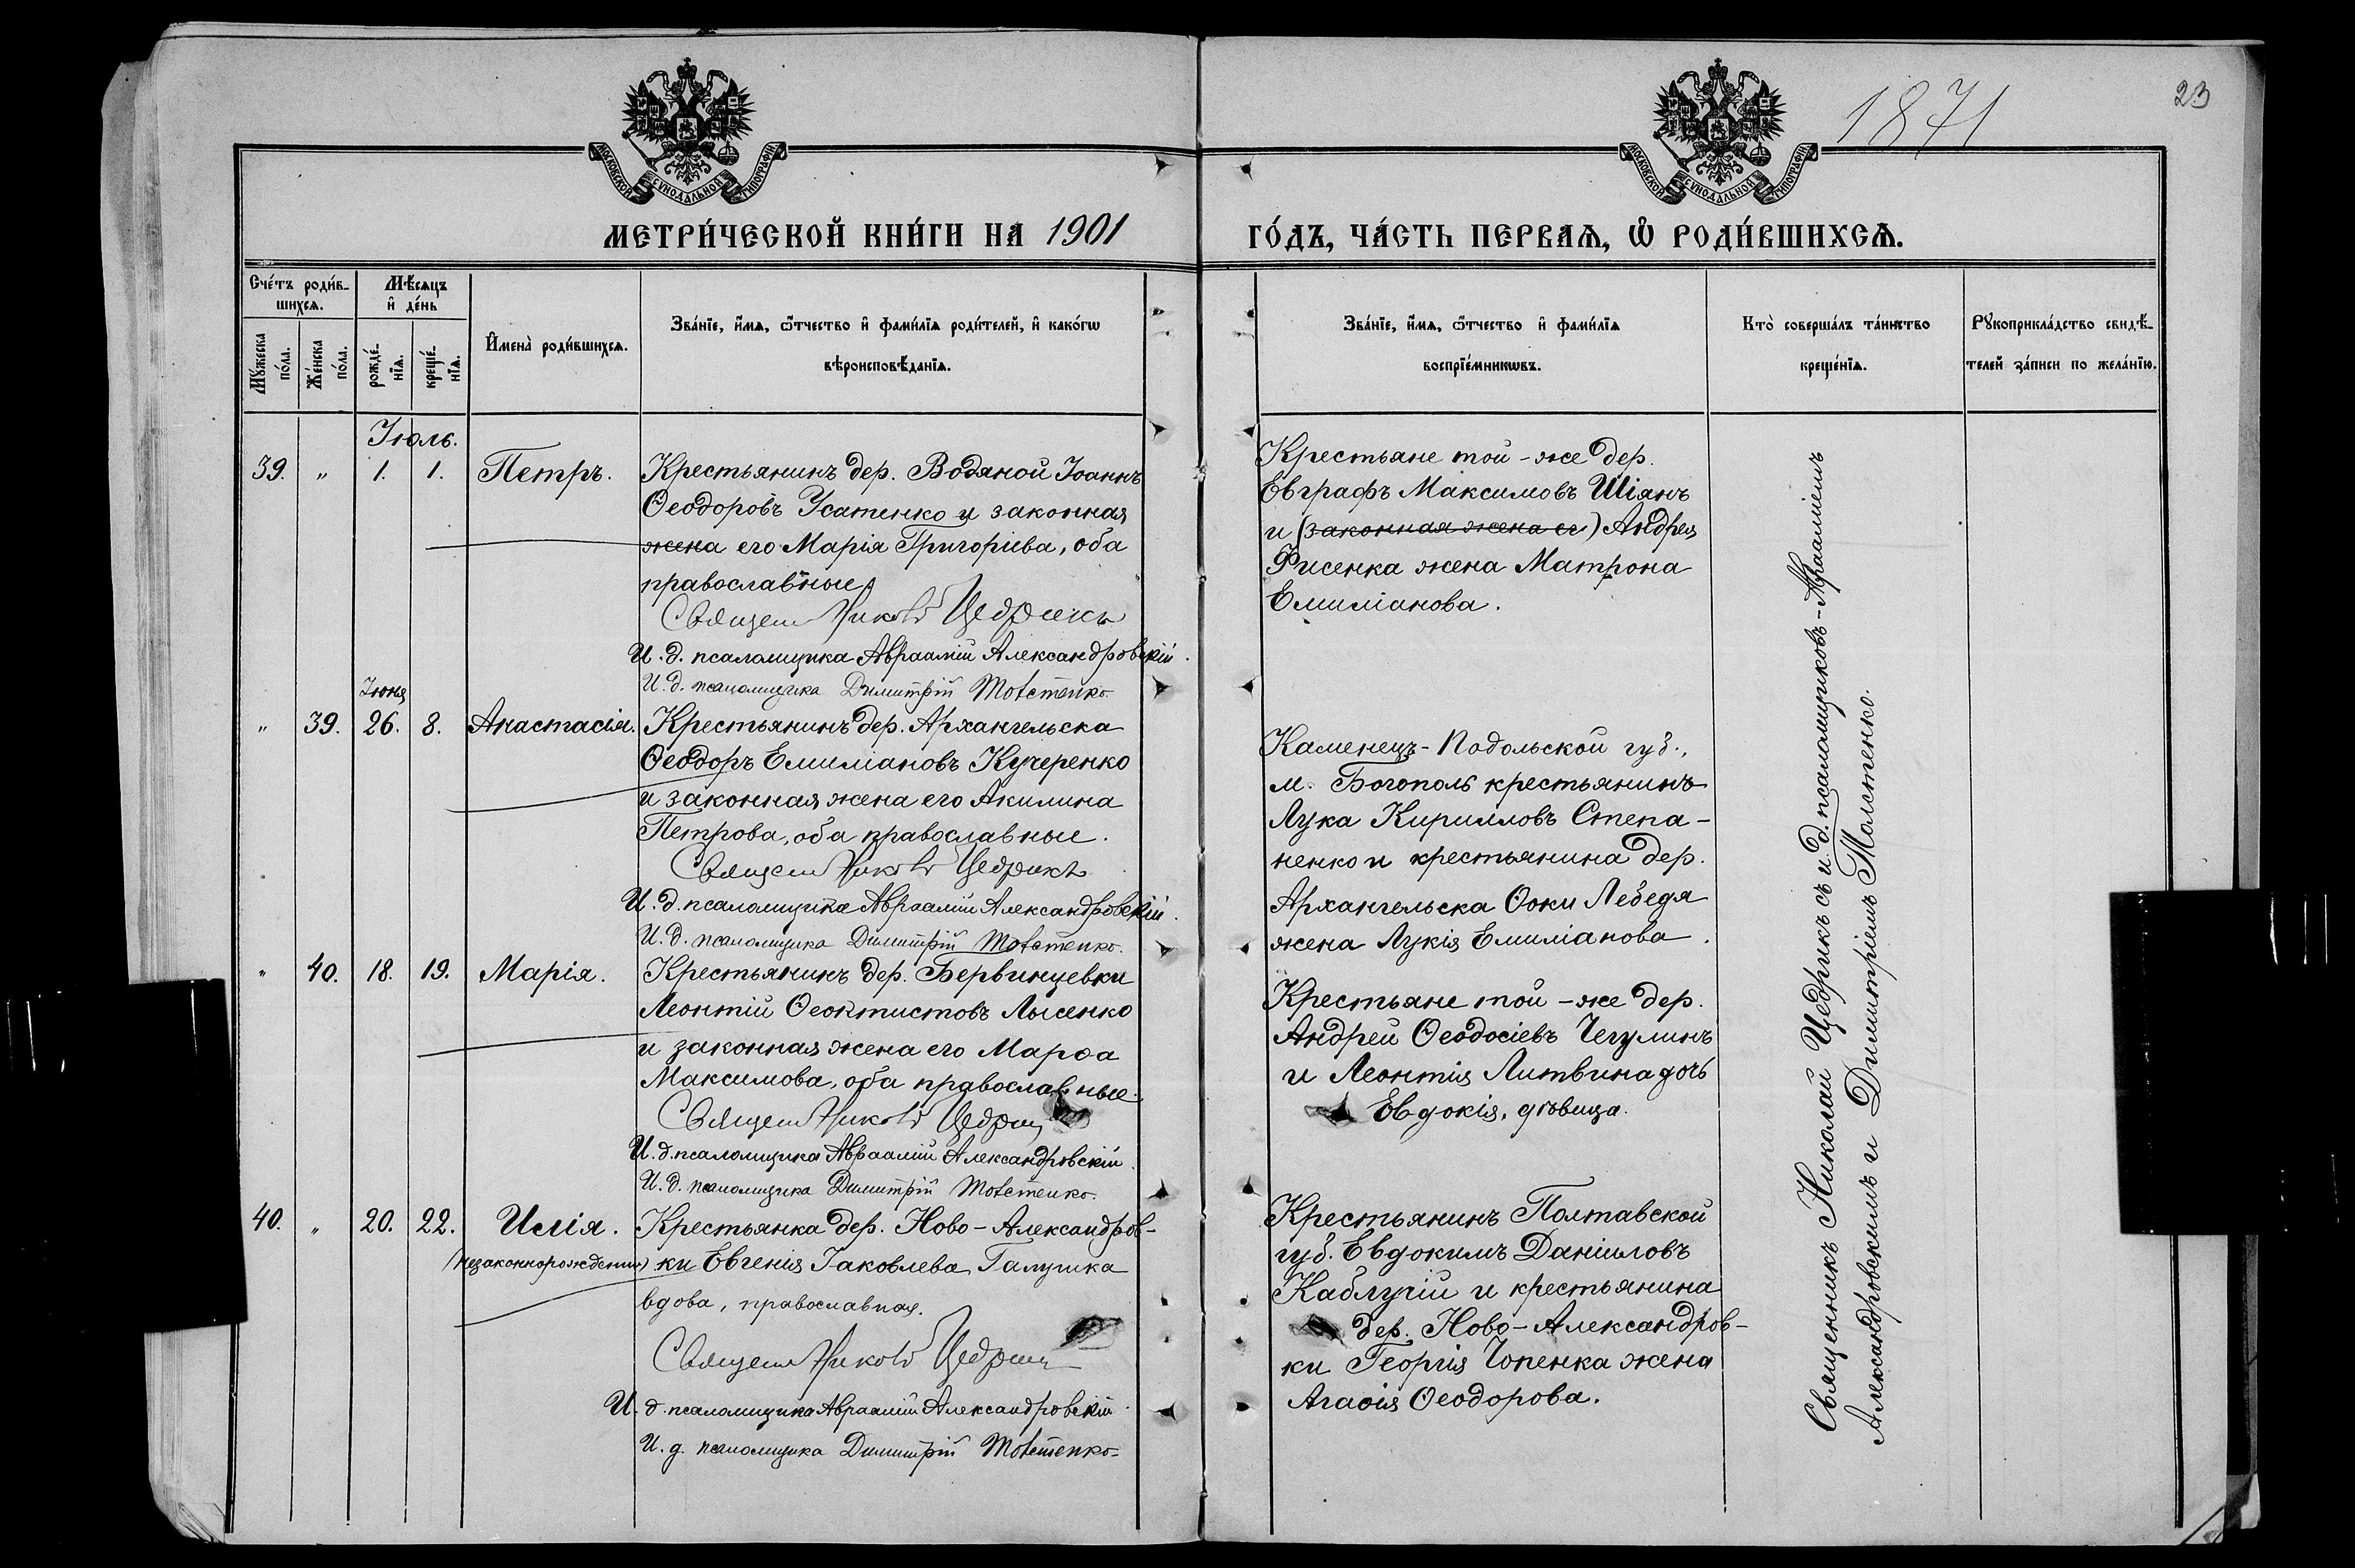 1871
23
МОСКОВСКОЙ СУНОДАЛЬНОЙ ТИПОГРАФІИ
МОСКОВСКОЙ СУНОДАЛЬНОЙ ТИПОГРАФІИ
МЕТРИ́ЧЕСКОЙ КНИ́ГИ НА 1901 ГО́ДЪ, ЧА́СТЬ ПЕРВАѦ, Ѡ҆ РОДИ́ВШИХСѦ.
Сче́тъ роди́в-
шихсѧ.
Мѣ́сяцъ
и҆ де́нь
Мꙋ́жеска
по́ла.
Же́нска
по́ла.
рожде́-
нїѧ.
креще́-
нїѧ.
И҆мена̀ роди́вшихсѧ.
Зва́нїе, и҆́мѧ, ѻ҆́тчество и҆ фами́лїѧ роди́телей, и҆ како́гѡ
вѣроисповѣ́данїѧ.
Зва́нїе, и҆́мѧ, ѻ҆́тчество и҆ фами́лїѧ
воспрїе́мникѡвъ.
Кто̀ соверша́лъ та́инство
креще́нїѧ.
Рꙋкоприкла́дство свидѣ́-
телей за́писи по жела́нїю.
Іюль.
39. „ 1. 1. Петръ.
Крестьянинъ дер. Водяной Іоаннъ
Ѳеодоровъ Усатенко и законная
жена его Марія Григоріева, оба
православные
Священ Никол Цедрикъ
И. д. псаломщика Авраамій Александровскій.
И. д. псаломщика Димитрій Толстенко
Крестьяне той-же дер.
Евграфъ Максимовъ Шіянъ
и (законная жена ег) Андрея
Фисенка жена Матрона
Емиліанова.
Іюня
„ 39. 26. 8. Анастасія.
Крестьянинъ дер. Архангельска
Ѳеодоръ Емиліановъ Кучеренко
и законная жена его Акилина
Петрова, оба православные.
Священ Никол Цедрикъ
И. д. псаломщика Авраамій Александровскій.
И. д. псаломщика Димитрій Толстенко.
Каменецъ-Подольской губ.,
м. Богополь крестьянинъ
Лука Кирилловъ Степа-
ненко и крестьянина дер.
Архангельска Ѳоки Лебедя
жена Лукія Емиліанова.
„ 40. 18. 19. Марія.
Крестьянинъ дер. Бервинцевки
Леонтій Ѳеоктистовъ Лысенко
и законная жена его Марѳа
Максимова, оба православные.
Священ Никол Цедрик
И. д. псаломщика Авраамій Александровскій.
И. д. псаломщика Димитрій Толстенко.
Крестьяне той-же дер.
Андрей Ѳеодосіевъ Чегулинъ
и Леонтія Литвина дочь
Евдокія, дѣвица.
40. „ 20. 22. Илія.
(незаконнорожденный)
Крестьянка дер. Ново-Александров-
ки Евгенія Іаковлева Галушка
вдова, православная.
Священ Никол Цедрик
И. д. псаломщика Авраамій Александровскій.
И. д. псаломщика Димитрій Толстенко
Крестьянинъ Полтавской
губ. Евдокимъ Даніиловъ
Каблучій и крестьянина
дер. Ново-Александров-
ки Георгія Чопенка жена
Агаѳія Ѳеодорова.
Священникъ Николай Цедрикъ съ и. д. псаломщиковъ - Авраамiемъ
Александровскимъ и Димитріемъ Толстенко.